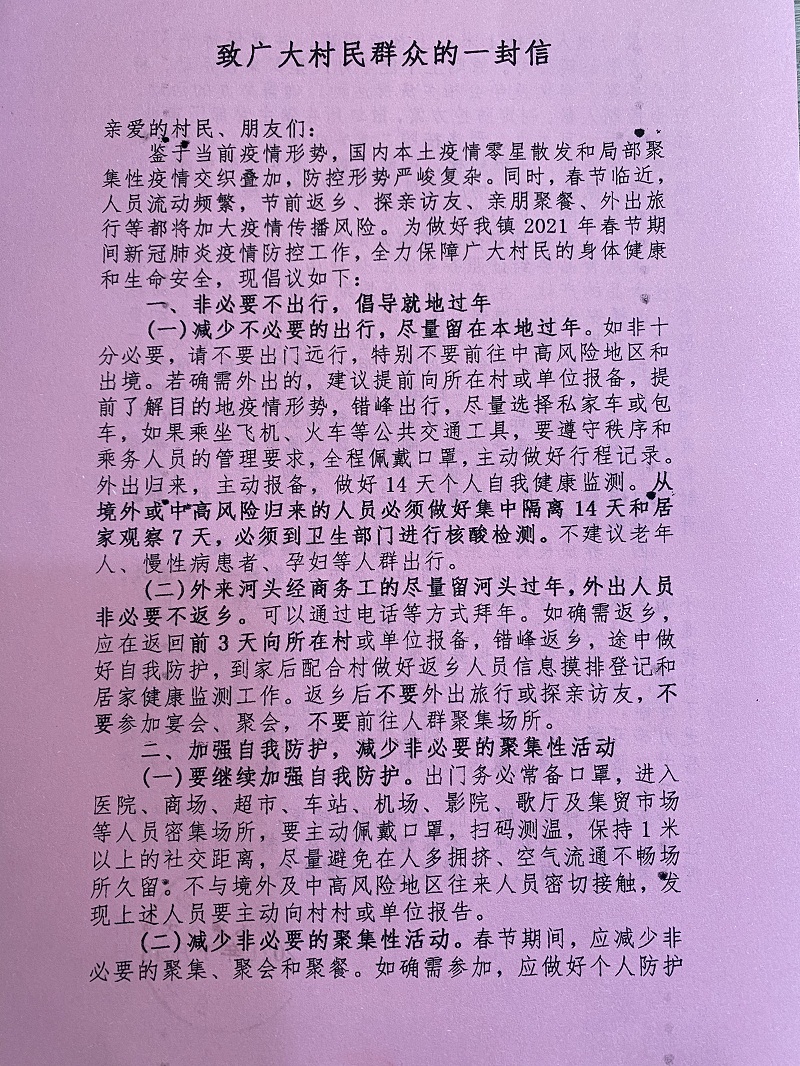 致广大村民群众的一封信
亲爱的村民、朋友们：
鉴于当前疫情形势，国内本土疫情零星散发和局部聚
集性疫情交织叠加，防控形势严峻复杂。同时，春节临近，
人员流动频繁，节前返乡、探亲访友、亲朋聚餐、外出旅
行等都将加大疫情传播风险。为做好我镇 2021 年春节期
间新冠肺炎疫情防控工作，全力保障广大村民的身体健康
和生命安全，现倡议如下：
一、非必要不出行，倡导就地过年
(一)减少不必要的出行，尽量留在本地过年。如非十
分必要，请不要出门远行，特别不要前往中高风险地区和
出境。若确需外出的，建议提前向所在村或单位报备，提
前了解目的地疫情形势，错峰出行，尽量选择私家车或包
车，如果乘坐飞机、火车等公共交通工具，要遵守秩序和
乘务人员的管理要求，全程佩戴口罩，主动做好行程记录。
外出归来，主动报备，做好 14 天个人自我健康监测。从
境外或中高风险归来的人员必须做好集中隔离 14 天和居
家观察 7 天，必须到卫生部门进行核酸检测。不建议老年
人、慢性病患者、孕妇等人群出行。
(二)外来河头经商务工的尽量留河头过年，外出人员
非必要不返乡。可以通过电话等方式拜年。如确需返乡，
应在返回前 3 天向所在村或单位报备，错峰返乡，途中做
好自我防护，到家后配合村做好返乡人员信息摸排登记和
居家健康监测工作。返乡后不要外出旅行或探亲访友，不
要参加宴会、聚会，不要前往人群聚集场所。
二、加强自我防护，减少非必要的聚集性活动
(一)要继续加强自我防护。出门务必常备口罩，进入
医院、商场、超市、车站、机场、影院、歌厅及集贸市场
等人员密集场所，要主动佩戴口罩，扫码测温，保持 1 米
以上的社交距离，尽量避免在人多拥挤、空气流通不畅场
所久留。不与境外及中高风险地区往来人员密切接触，发
现上述人员要主动向村村或单位报告。
(二)减少非必要的聚集性活动。春节期间，应减少非
必要的聚集、聚会和聚餐。如确需参加，应做好个人防护